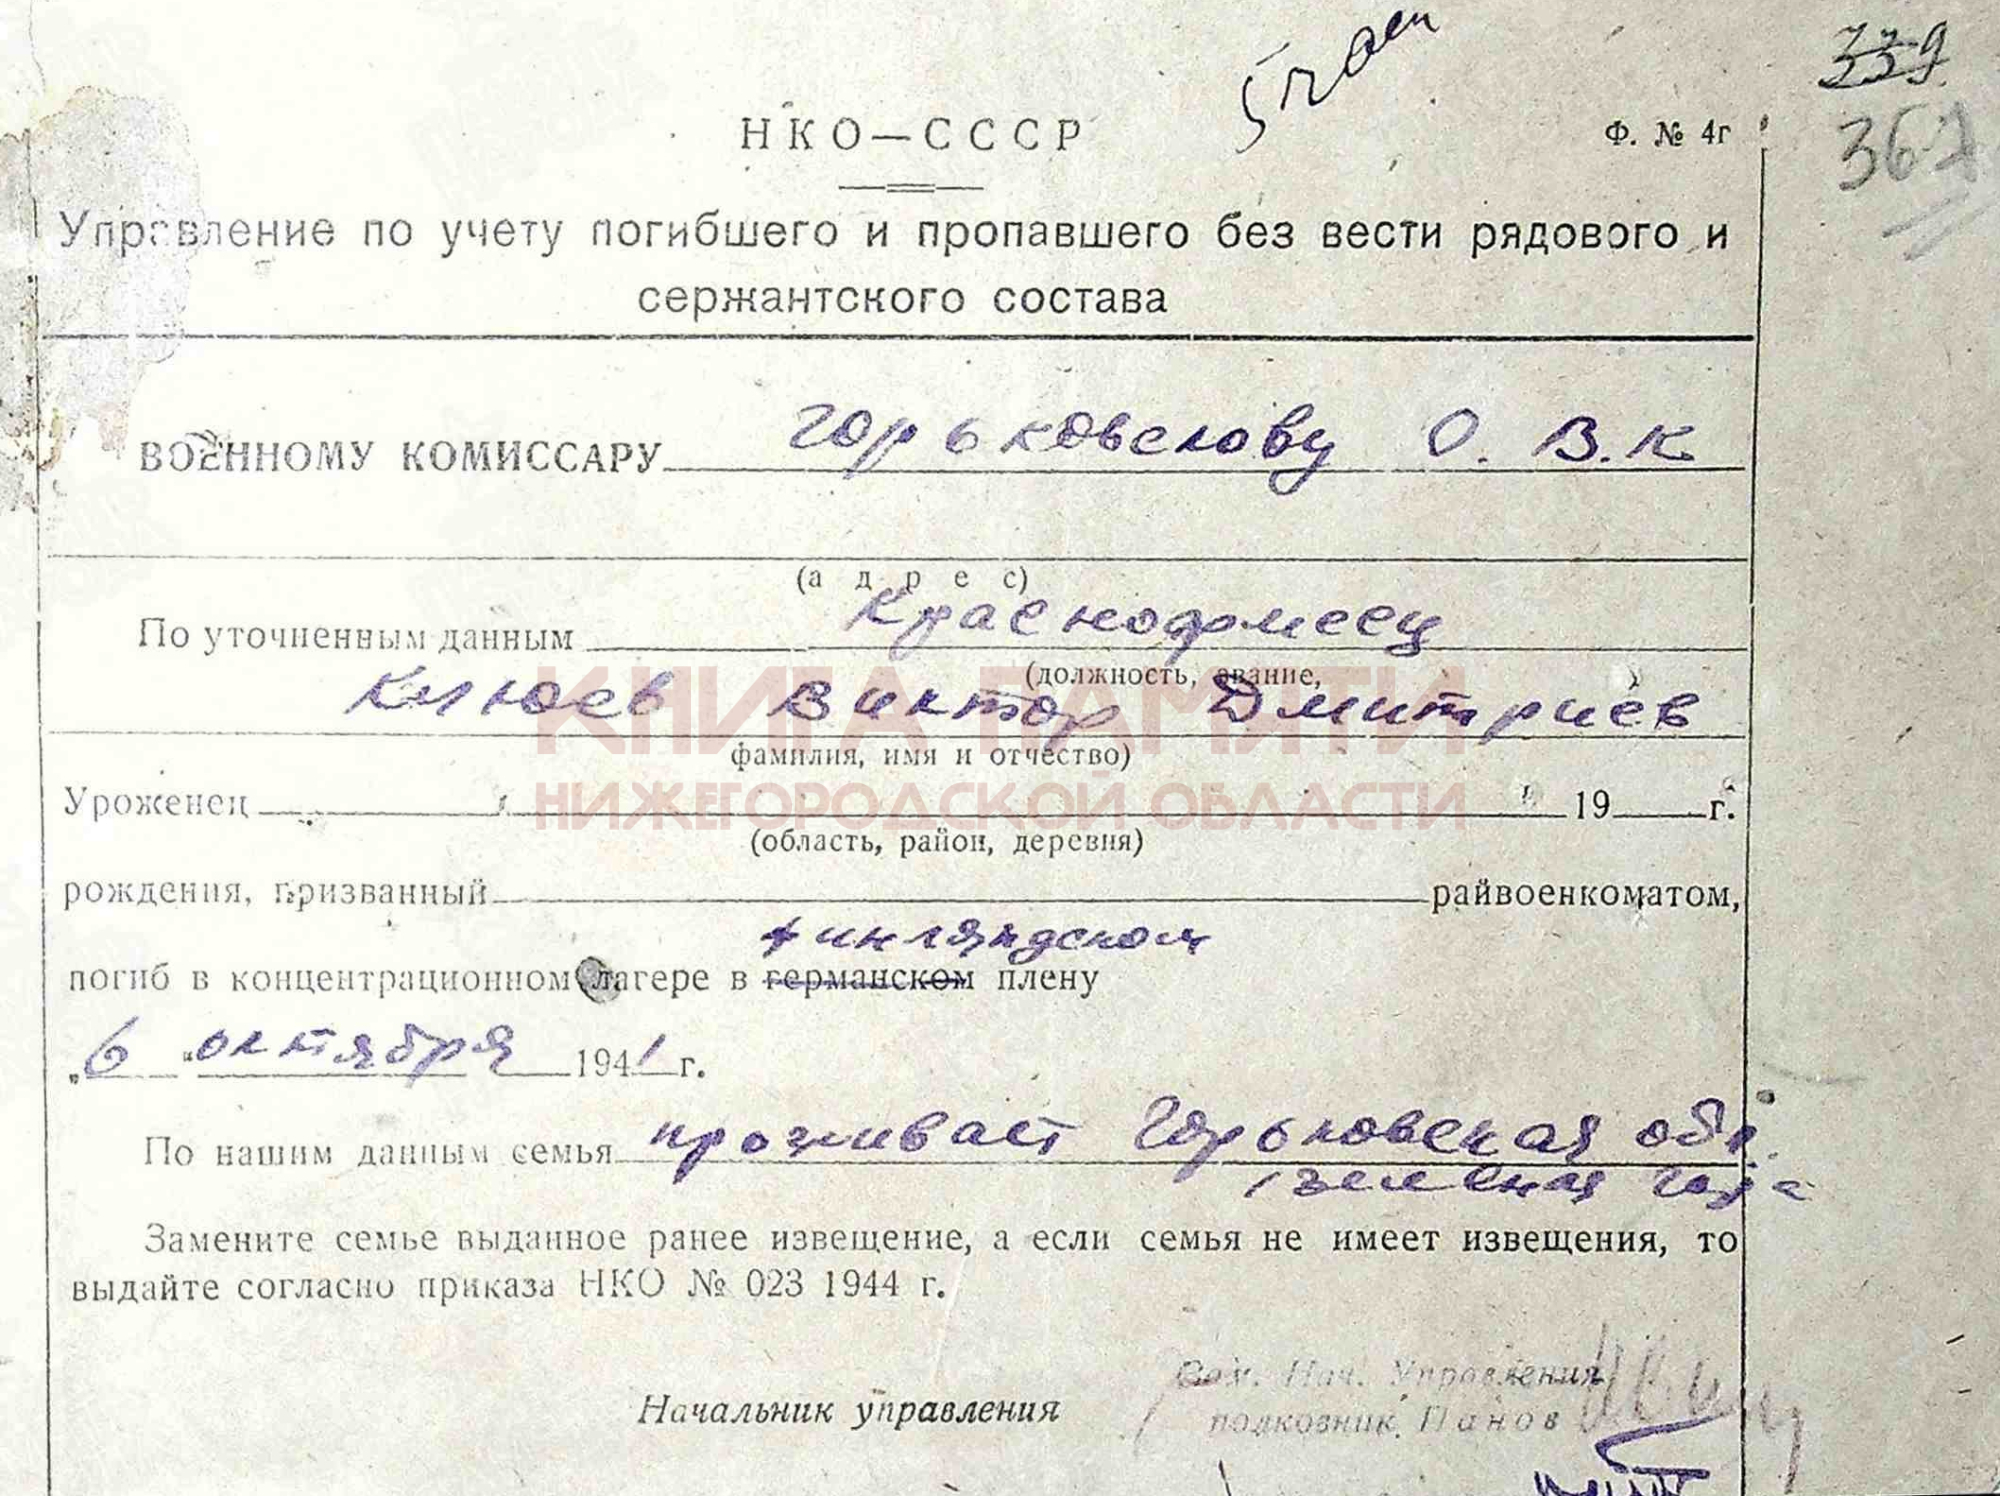 339
367
НКО—СССР
Ф. № 4г
Управление по учету погибшего и пропавшего без вести рядового и
сержантского состава
ВОЕННОМУ КОМИССАРУ Горьковскову О. В. К.
(адрес)
По уточненным данным Красноармеец
(должность, звание,
Клюев Виктор Дмитриев
фамилия, имя и отчество)
КНИГА ПАМЯТИ
НИЖЕГОРОДСКОЙ ОБЛАСТИ
Уроженец 19 г.
(область, район, деревня)
рождения, призванный райвоенкоматом,
финляндском
погиб в концентрационном лагере в германском плену
„6 „ октября 1941 г.
По нашим данным семья проживает Горьковская обл.
Зеленая гора
Замените семье выданное ранее извещение, а если семья не имеет извещения, то
выдайте согласно приказа НКО № 023 1944 г.
Начальник управления
Зам. Нач. Управления
полковник Панов